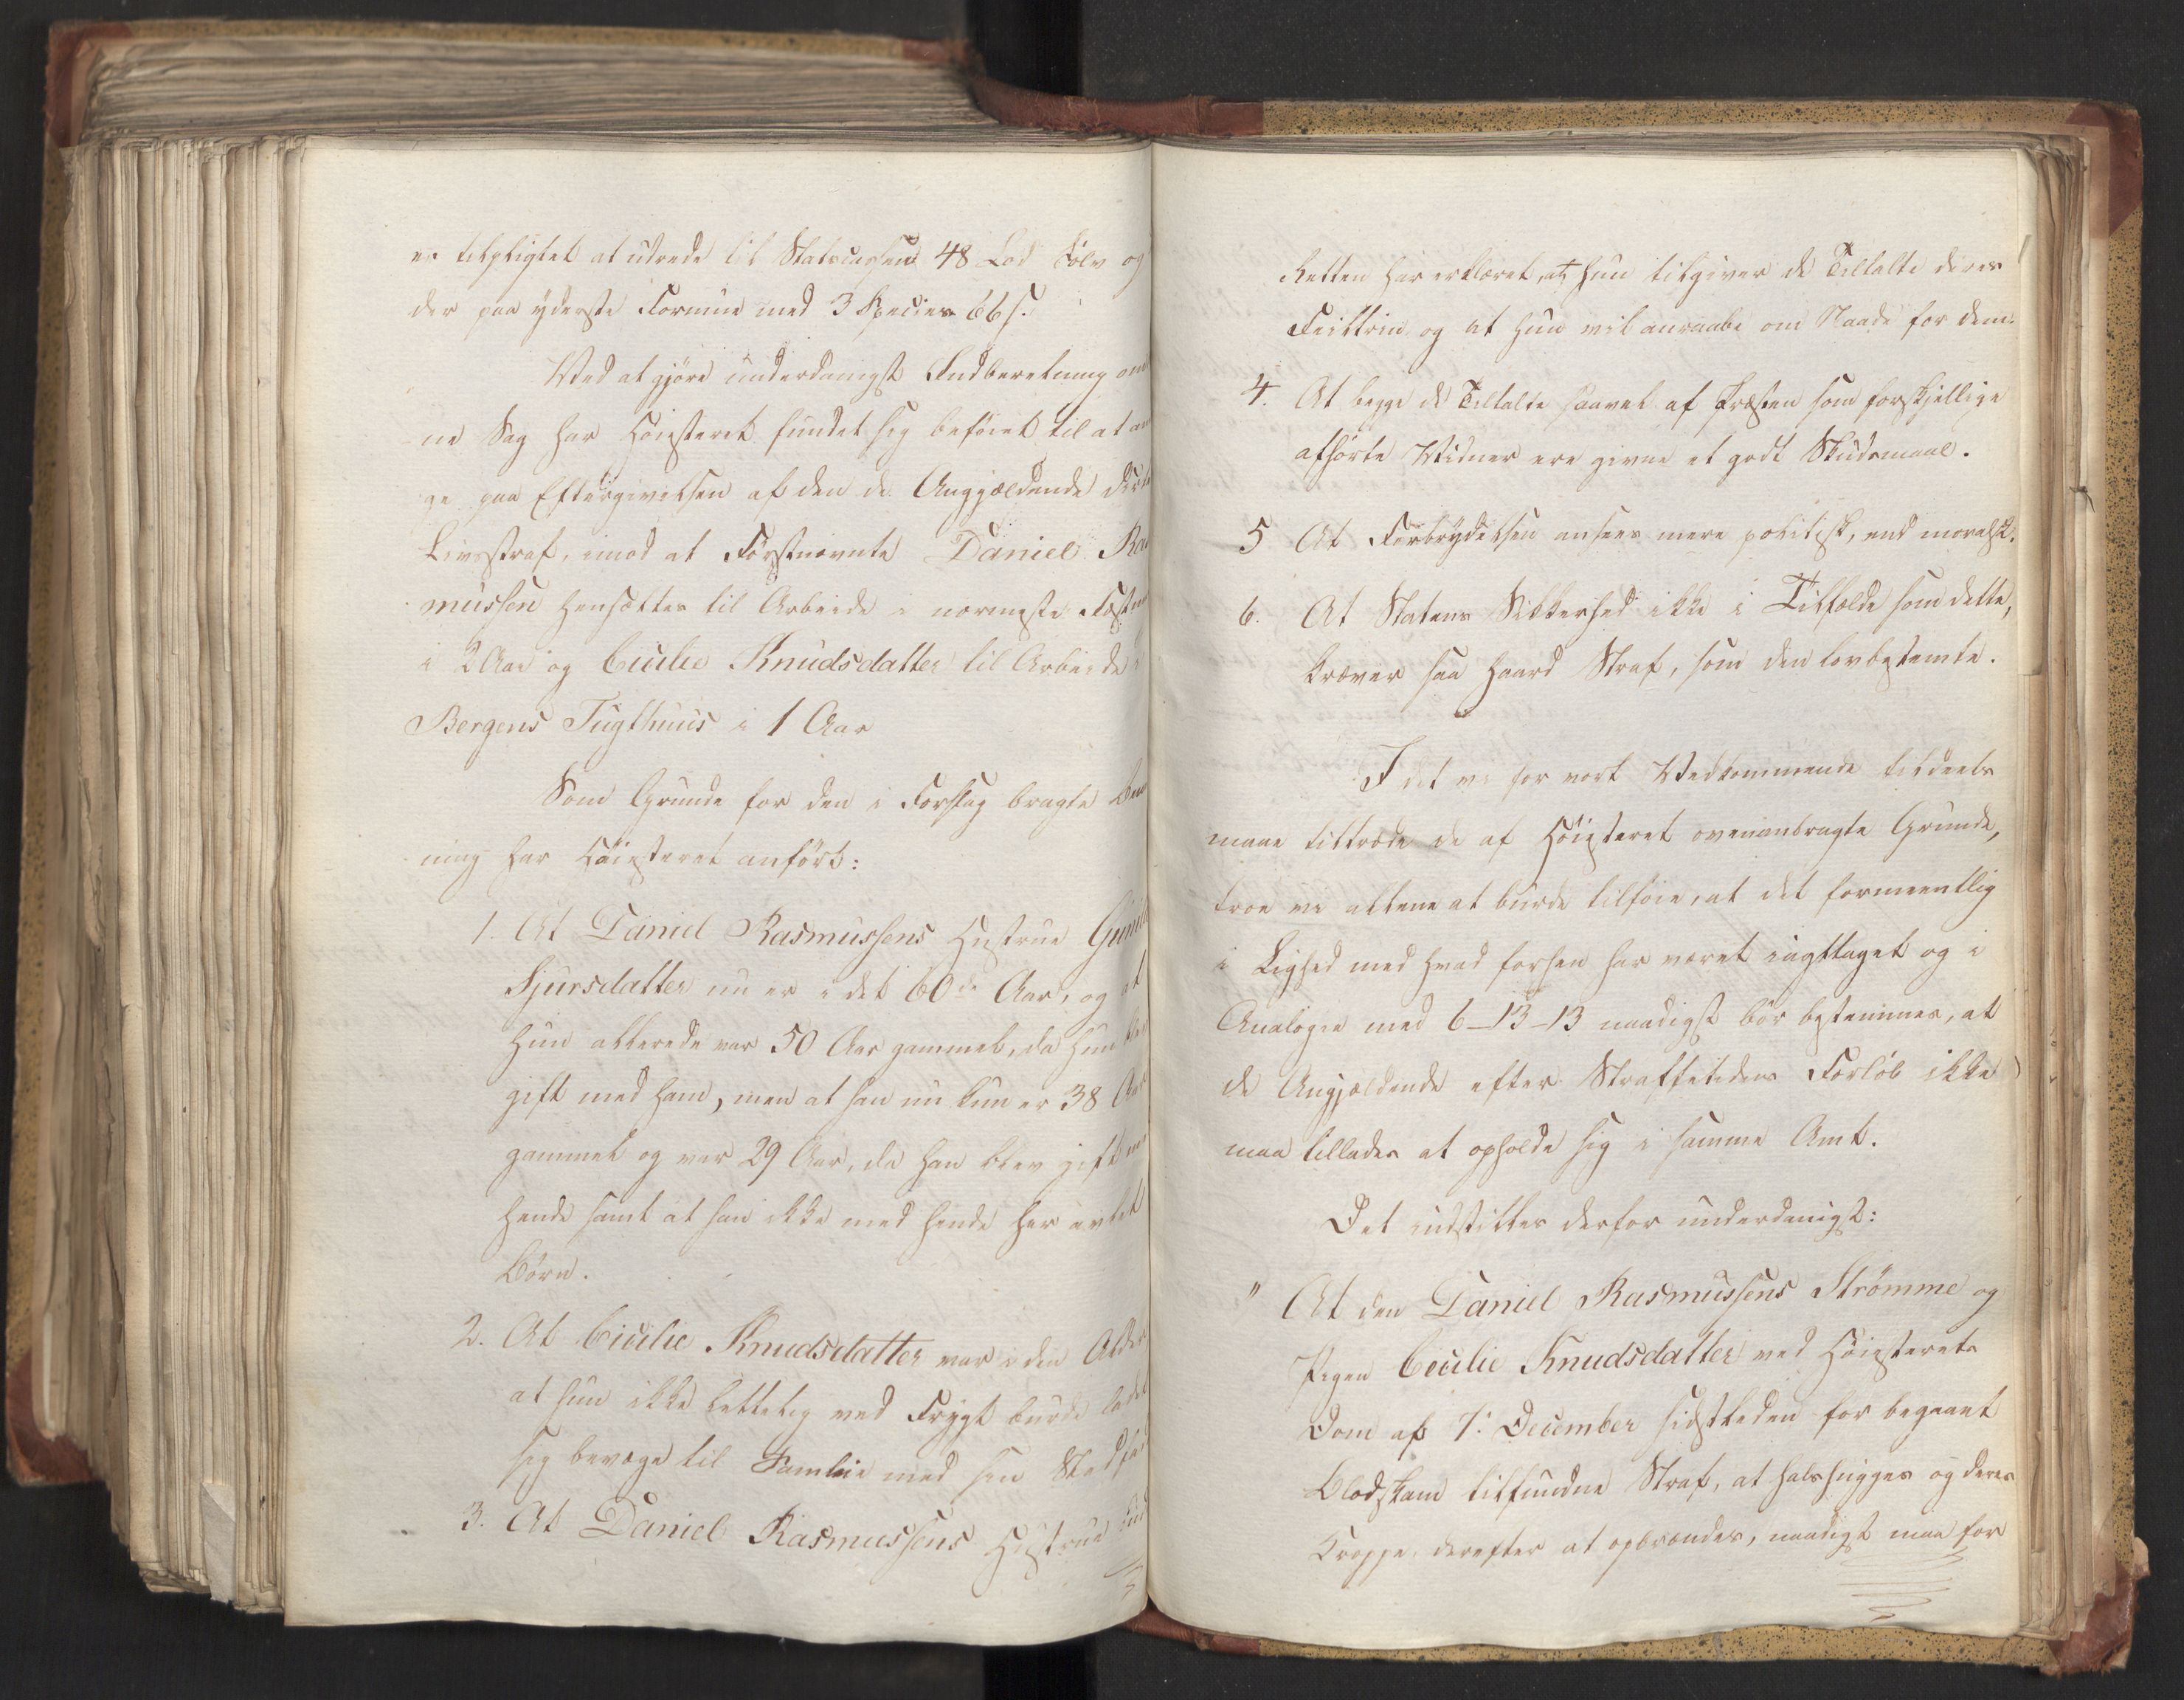 er tilpligtet at udrede til Statscassen 48 Lod Sølv og
der paa yderste Formue med 3 Species 66 s.
Ved at gjöre underdanigst Indberetning om
ne Sag har Höiesteret fundet sig beföiet til at an
ge paa Eftergivelsen af den de Angjældende
Livsstraf, imod at Förstnævnte Daniel Ras
mussen hensættes til Arbeide i nærmeste Fæstn
i 2 Aar og Cecilie Knudsdatter til Arbeide i
Bergens Tugthuus i 1 Aar
Som Grunde for den i Forslag bragte Ben
ning har Höiesteret anfört:
1. At Daniel Rasmussens Hustrue Gunild
Sjursdatter nu er i det 60de Aar, og at
hun allerede var 50 Aar gammel, da hun blev
gift med ham, men at han nu kun er 38 Aar
gammel og var 29 Aar, da han blev gift med
hende samt at han ikke med hende har avlet
Börn.
2. At Cecilie Knudsdatter var i den Alder
at hun ikke lettelig ved Frygt burde ladet
sig bevæge til Samleie med sin Stedfad
3. At Daniel Rasmussens Hustrue ind
Retten har erklæret, at hun tilgiver de Tiltalte deres
Feiltrin og at hun vil anraabe om Naade for dem.
4. At begge de Tiltalte saavel af Præsten som forskjellige
afhörte Vidner ere givne et godt Skudsmaal.
5 At Forbrydelsen ansees mere politisk, end moralsk.
6. At Statens Sikkerhed ikke i Tilfælde som dette,
kræver saa haard Straf, som den lovbestemte.
I det vi for vort Vedkommende tildeels
maae tiltræde de af Höiesteret ovenanbragte Grunde,
troe vi allene at burde tilföie, at det formeentlig
i Lighed med hvad forhen har været iagttaget og i
Analogie med 6-13-13 naadigst bör bestemmes, at
de Angjældende efter Straffetidens Forlöb ikke
maa tillades at opholde sig i samme Amt.
Det indstilles derfor underdanigst:
" At den Daniel Rasmussens Strömme og
Pigen Cecilie Knudsdatter ved Höiesterets
Dom af 7: December sidstleden for begaaet
Blodskam tilfundne Straf, at halshugges og deres
Kroppe derefter at opbrændes, naadigst maa for